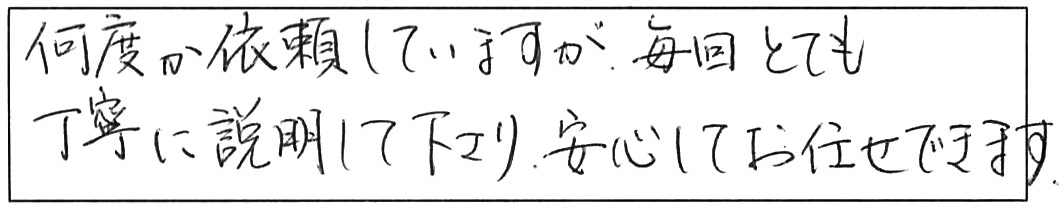 何度か依頼していますが、毎回とても
丁寧に説明して下さり、安心してお任せできます。